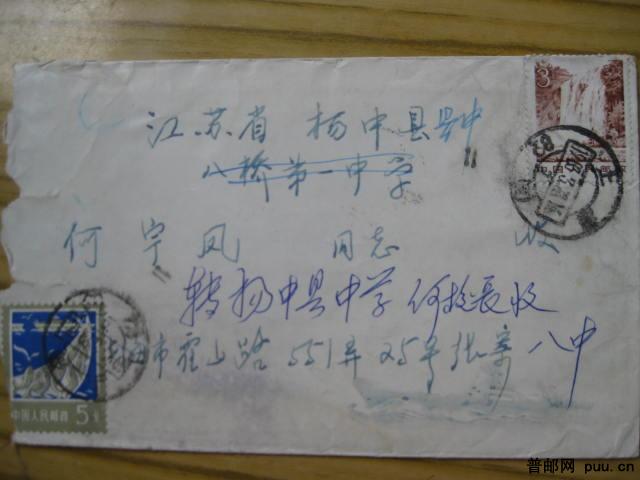 3
江苏省 扬中县县中
八桥第一中学
何宇凤 同志 收
转扬中县中学何校长收
上海市霍山路551弄25号张寄 八中
中国人民邮政
5
普邮网 puu.cn